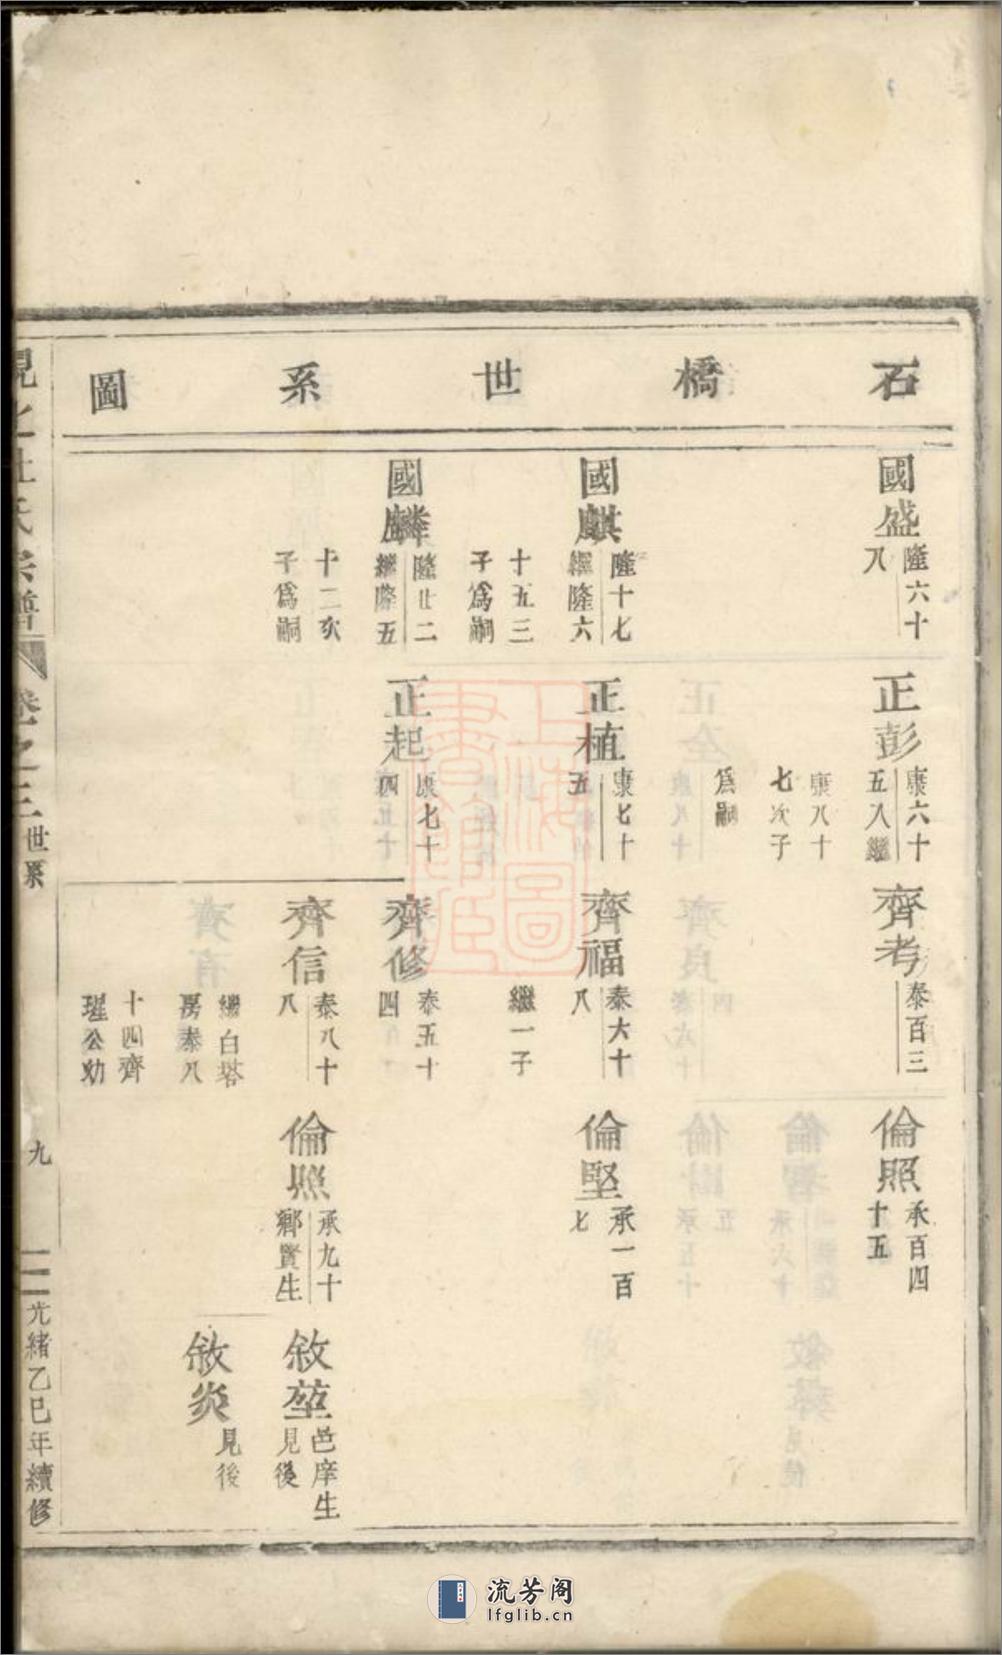 石橋世系圖
國盛
隆六十
八
國麒
隆十七
繼隆六
十五三
子爲嗣
國麟
隆廿二
繼隆五
十二次
子爲嗣
正彭
康六十
五入繼
康八十
七次子
爲嗣
正植
康七十
五
正起
康七十
四
齊考
泰百三
齊福
泰六十
八
繼一子
齊修
泰五十
四
齊信
泰八十
八
繼白塔
房泰八
十四齊
瑆公幼
倫照
承百四
十五
倫堅
承一百
七
倫照
承九十
鄉賢生
敘堃
邑庠生
見後
敘炎
見後
杜氏宗譜
卷之三
世系
九
光緒乙巳年續修
上海圖書館藏
流芳阁
lfglib.cn